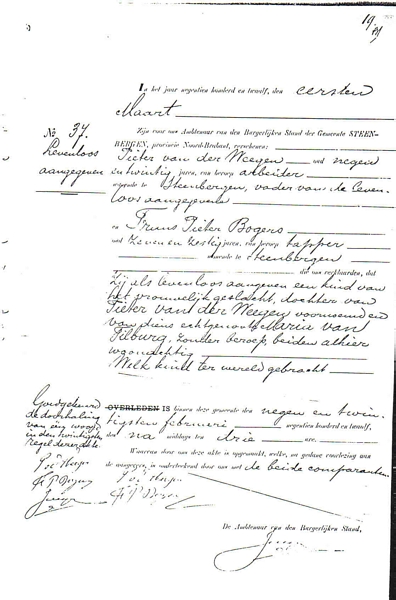 19
In het jaar negentien honderd en twaalf, den eersten
Maart
No 37.
Levenloos
aangegeven
Zijn voor ons Ambtenaar van den Burgerlijken Stand der Gemeente STEEN-
BERGEN, provincie Noord-Brabant, verschenen:
Pieter van der Weegen oud negen
en twintig jaren, van beroep arbeider
wonende te Steenbergen, vader van de leven-
loos aangegevene
en Frans Pieter Bogers
oud zeven en zestig jaren, van beroep tapper
wonende te Steenbergen
die ons verklaarden, dat
zij als levenloos aangeven een kind van
het vrouwelijk geslacht, dochter van
Pieter van der Weegen voornoemd en
van diens echtgenoote Maria van
Tilburg, zonder beroep, beiden alhier
woonachtig
Welk kind ter wereld gebracht
Goedgekeurd
de doorhaling
van één woord
in den twintigsten
regel dezer akte.
OVERLEDEN IS binnen deze gemeente den negen en twin-
tigsten februari negentien honderd en twaalf,
des na middags te drie ure.
Waarvan door ons deze akte is opgemaakt, welke, na gedane voorlezing aan
de aangevers, is onderteekend door ons met de beide comparanten.
De Ambtenaar van den Burgerlijken Stand,